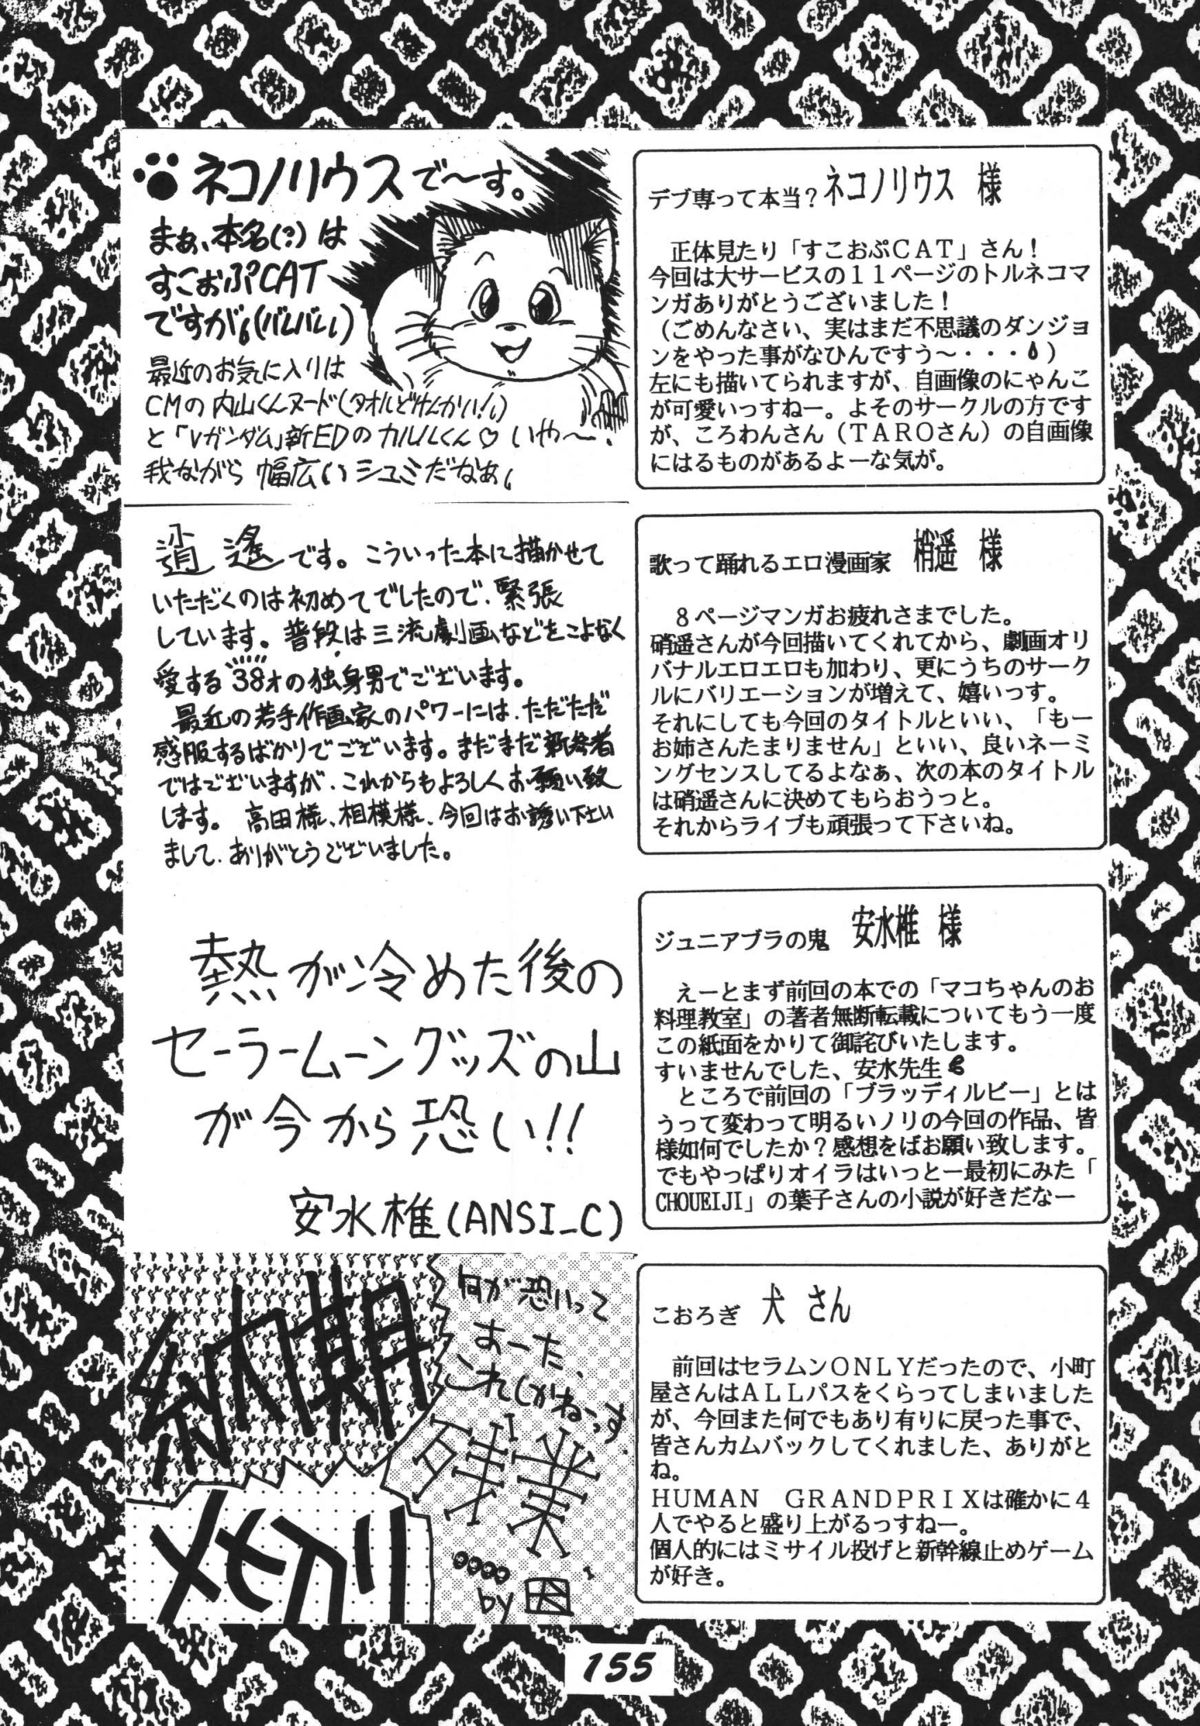 ネコノリウスで〜す。
まぁ、本名(?)は
すこおぷCAT
ですが。(バレバレ)
最近のお気に入りは
CMの内山くんヌード(タオルどけんかい!)
と「Vガンダム」新EDのカルルくん♡いや〜!
我ながら幅広いシュミだなぁ。
デブ専って本当?ネコノリウス 様
正体見たり「すこおぷCAT」さん!
今回は大サービスの11ページのトルネコマ
ンガありがとうございました!
(ごめんなさい、実はまだ不思議のダンジョ
ンをやった事がなひんですう〜・・・)
左にも描いてられますが、自画像のにゃんこ
が可愛いっすねー。よそのサークルの方です
が、ころわんさん(TAROさん)の自画像
にはるものがあるよーな気が。
逍遙です。こういった本に描かせて
いただくのは初めてでしたので、緊張
しています。普段は三流劇画などをこよなく
愛する38才の独身男でございます。
最近の若手作画家のパワーには、ただただ
感服するばかりでございます。まだまだ新参者
ではございますが、これからもよろしくお願い致
します。高田様、相模様、今回はお誘い下さい
まして、ありがとうございました。
歌って踊れるエロ漫画家 梢遥 様
8ページマンガお疲れさまでした。
硝遥さんが今回描いてくれてから、劇画オリ
バナルエロエロも加わり、更にうちのサーク
ルにバリエーションが増えて、嬉いっす。
それにしても今回のタイトルといい、「もー
お姉さんたまりません」といい、良いネーミ
ングセンスしてるよなぁ、次の本のタイトル
は硝遥さんに決めてもらおうっと。
それからライブも頑張って下さいね。
熱が冷めた後の
セーラームーングッズの山
が今から恐い!!
安水椎(ANSI_C)
ジュニアブラの鬼 安水椎 様
えーとまず前回の本での「マコちゃんのお
料理教室」の著者無断転載についてもう一度
この紙面をかりて御詫びいたします。
すいませんでした、安水先生
ところで前回の「ブラッディルビー」とは
うって変わって明るいノリの今回の作品、皆
様如何でしたか?感想をばお願い致します。
でもやっぱりオイラはいっとー最初にみた「
CHOUEIJI」の葉子さんの小説が好きだなー
幼期
何が恐いって
あーた、
これしかねーっす。
残業
by
こおろぎ 犬 さん
前回はセラムンONLYだったので、小町
屋さんはALLパスをくらってしまいました
が、今回また何でもあり有りに戻った事で、
皆さんカムバックしてくれました、ありがと
ね。
HUMAN GRANDPRIXは確かに4
人でやると盛り上がるっすねー。
個人的にはミサイル投げと新幹線止めゲーム
が好き。
155